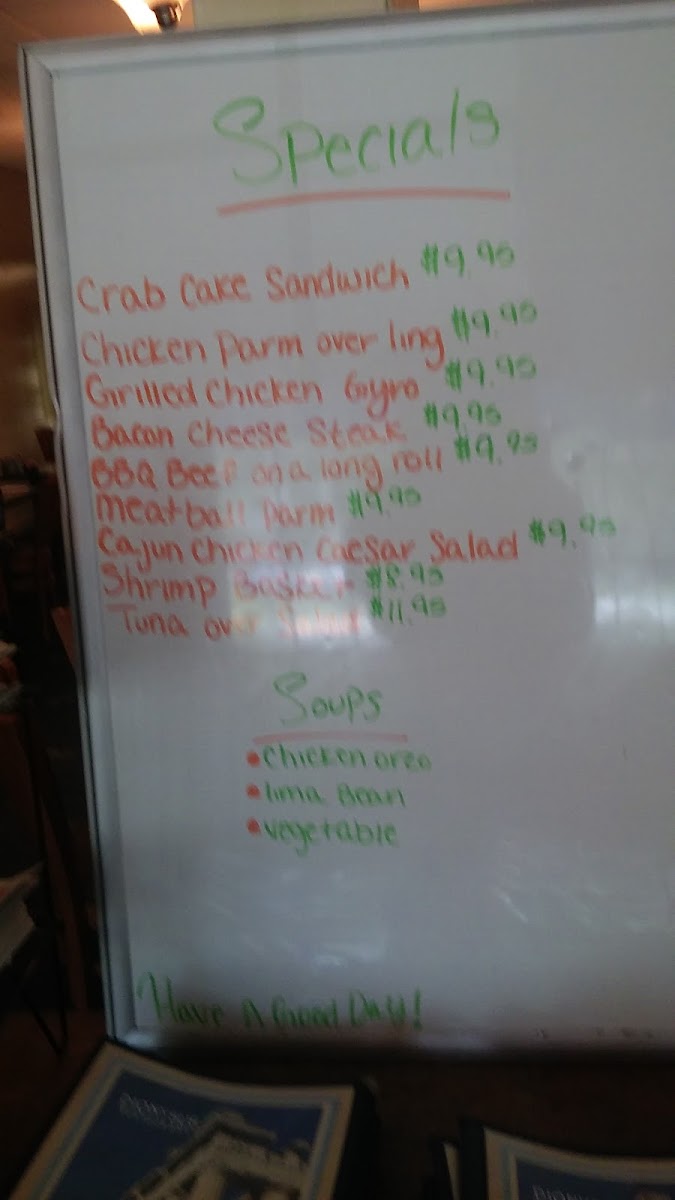 Specials
Crab Cake Sandwich $9.95
Chicken Parm over ling $9.95
Grilled Chicken Gyro $9.95
Bacon Cheese Steak $9.95
BBQ Beef on a long roll $9.95
Meatball Parm $9.95
Cajun Chicken Caesar Salad $9.95
Shrimp Basket $8.95
Tuna over Salad $11.95
Soups
•Chicken orzo
•Lima Bean
•vegetable
Have A Good Day!